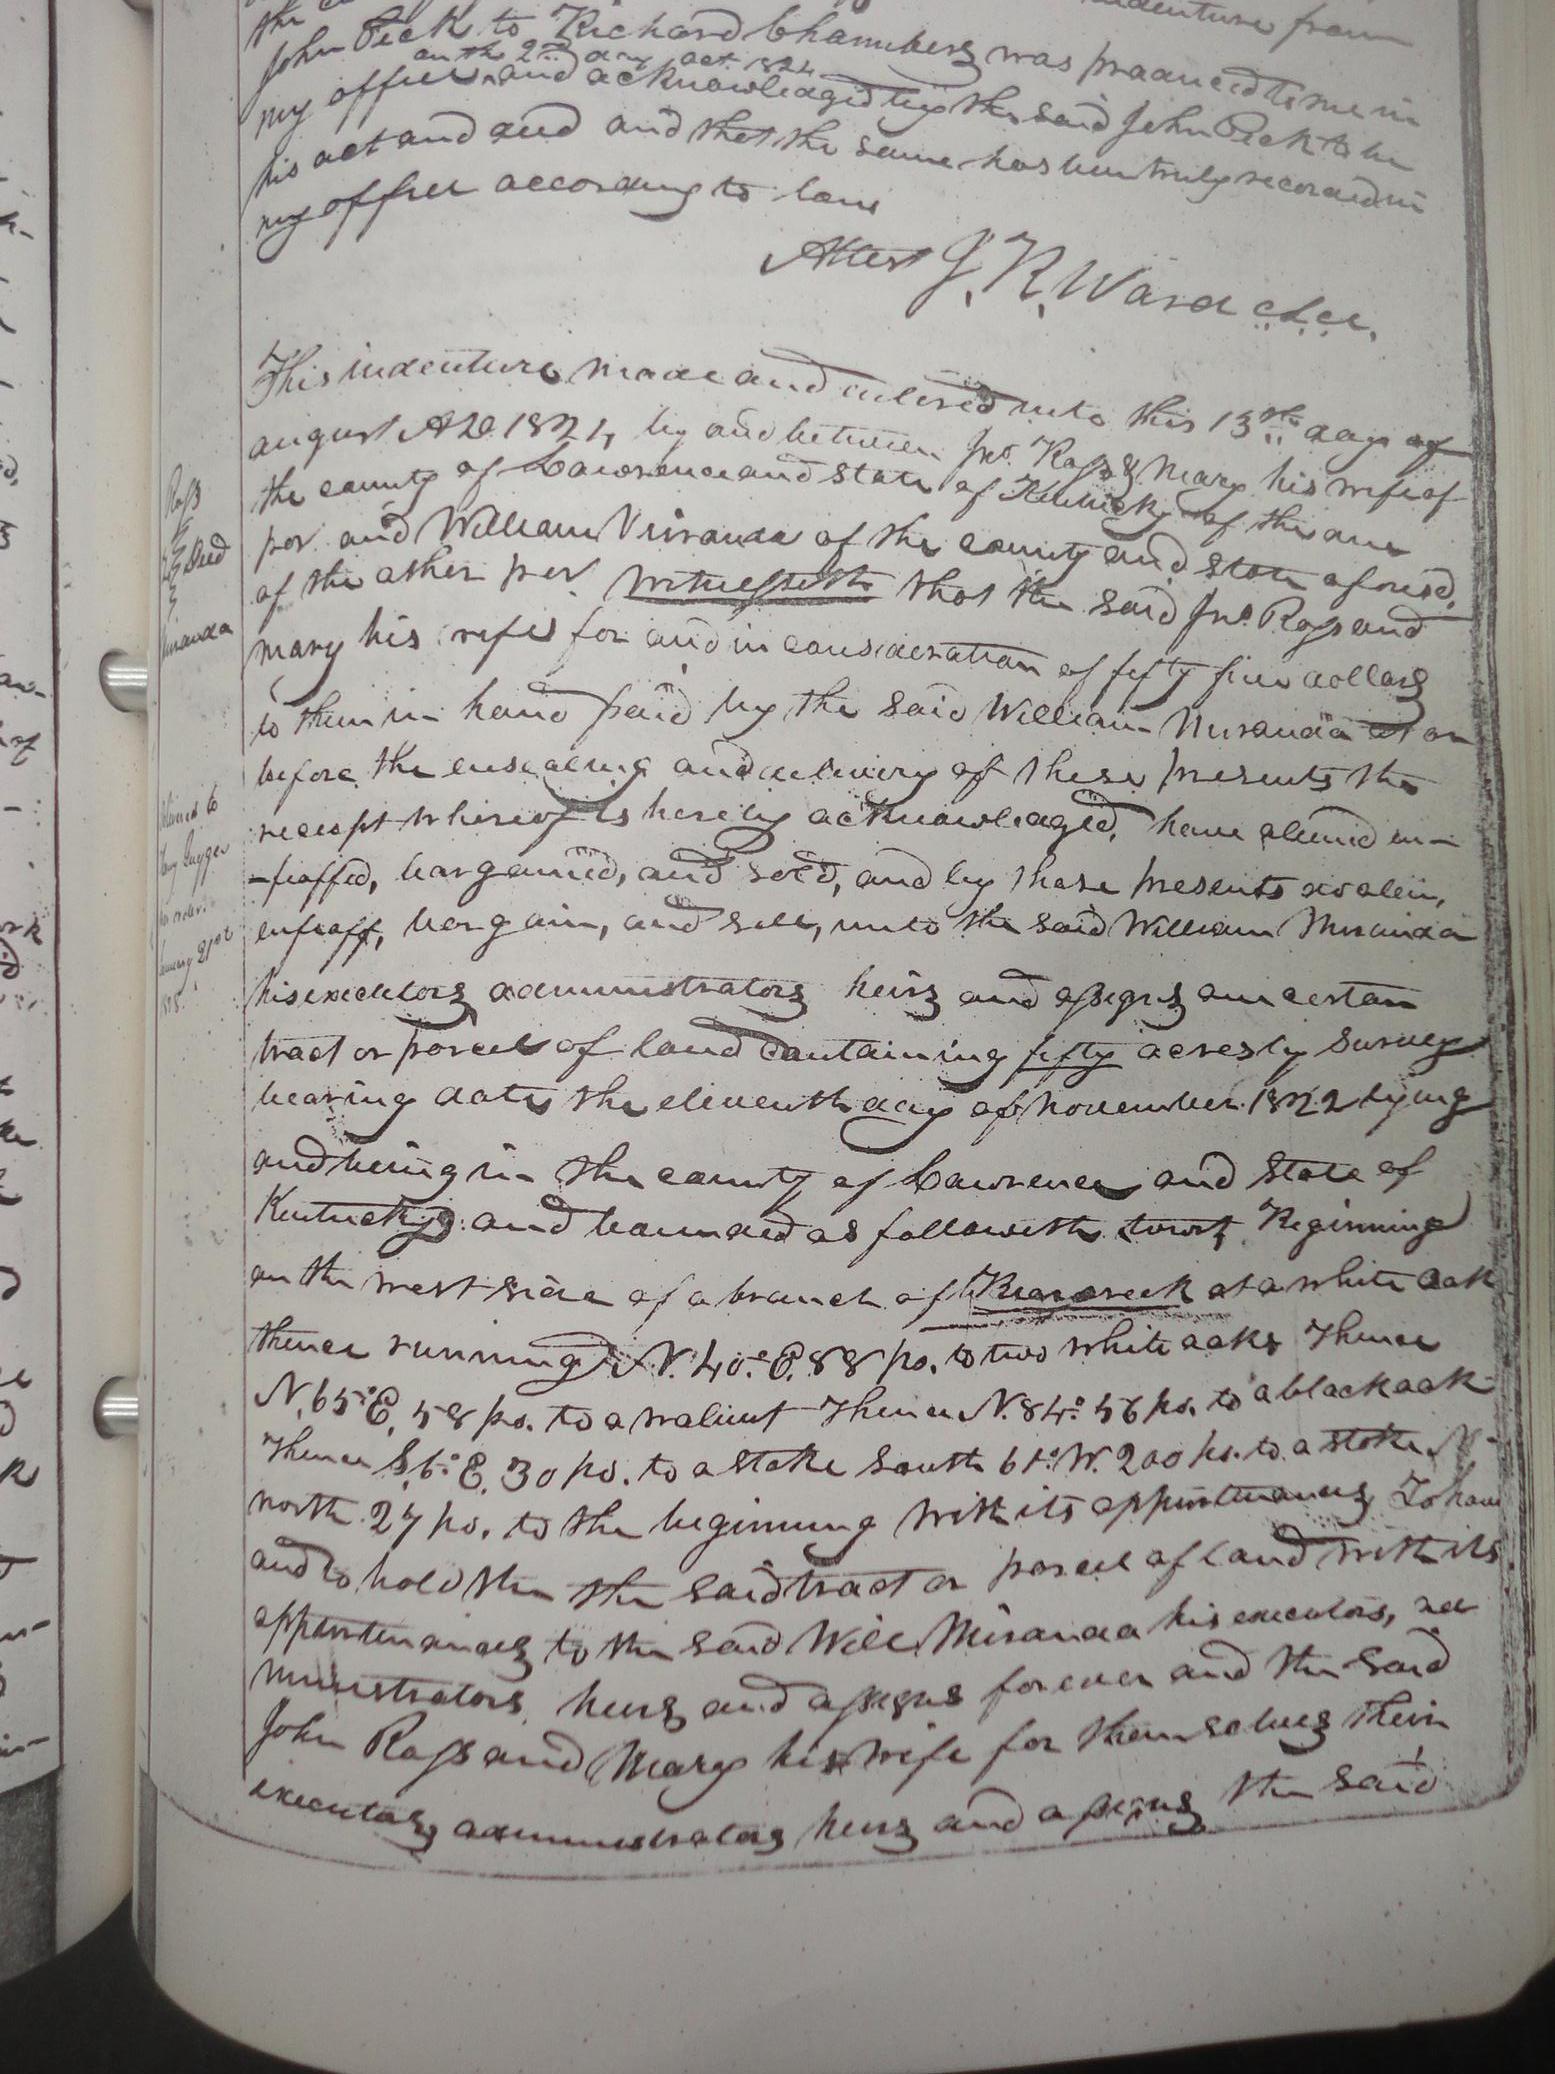 indenture from
John Peck to Richard Chambers was produced to me in
on the 2nd day oct. 1824
my office and acknowledged by the said John Peck to be
his act and deed and that the same has been truly recorded in
my office according to law
Attest J. R. Ward c.l.c.c.
This indenture made and entered into this 13th day of
august AD 1824, by and between Jno. Ross & Mary his wife of
the county of Lawrence and state of Kentucky of the one
par and William Miranda of the county and state aforesd.
of the other par. Witnesseth that the said Jno. Ross and
mary his wife for and in consideration of fifty five dollars
to them in hand paid by the said William Miranda at or
before the ensealing and delivery of these presents the
receipt whereof is hereby acknowledged, have aliend in-
-feoffed, bargained, and sold, and by these presents do alein,
enfeoff, bargain, and sell, unto the said William Miranda
his executors administrators heirs and assigns one certan
tract or parcel of land containing fifty acres by survey
bearing date the eleventh day of november 1822 lying
and being in the county of Lawrence and state of
Kentucky and bounded as followeth towit, Beginning
on the west side of a branch of creek at a white oak
thence running N. 40° E. 88 po. to two white oaks Thence
N. 65° E. 58 po. to a walnut Thence N. 84° 56 po. to a black oak
Thence S. 6° E. 30 po. to a stake South 61° W. 200 po. to a stake N-
north 27 po. to the beginning with its appurtenances To have
and to hold the the said tract or parcel of land with its
appurtenances to the said Will Miranda his executors, ad
ministrators, heirs and assigns forever and the said
John Ross and Mary his wife for themselves their
executors administrators heirs and assigns the said
Ross
Deed
Miranda
to
order
21st